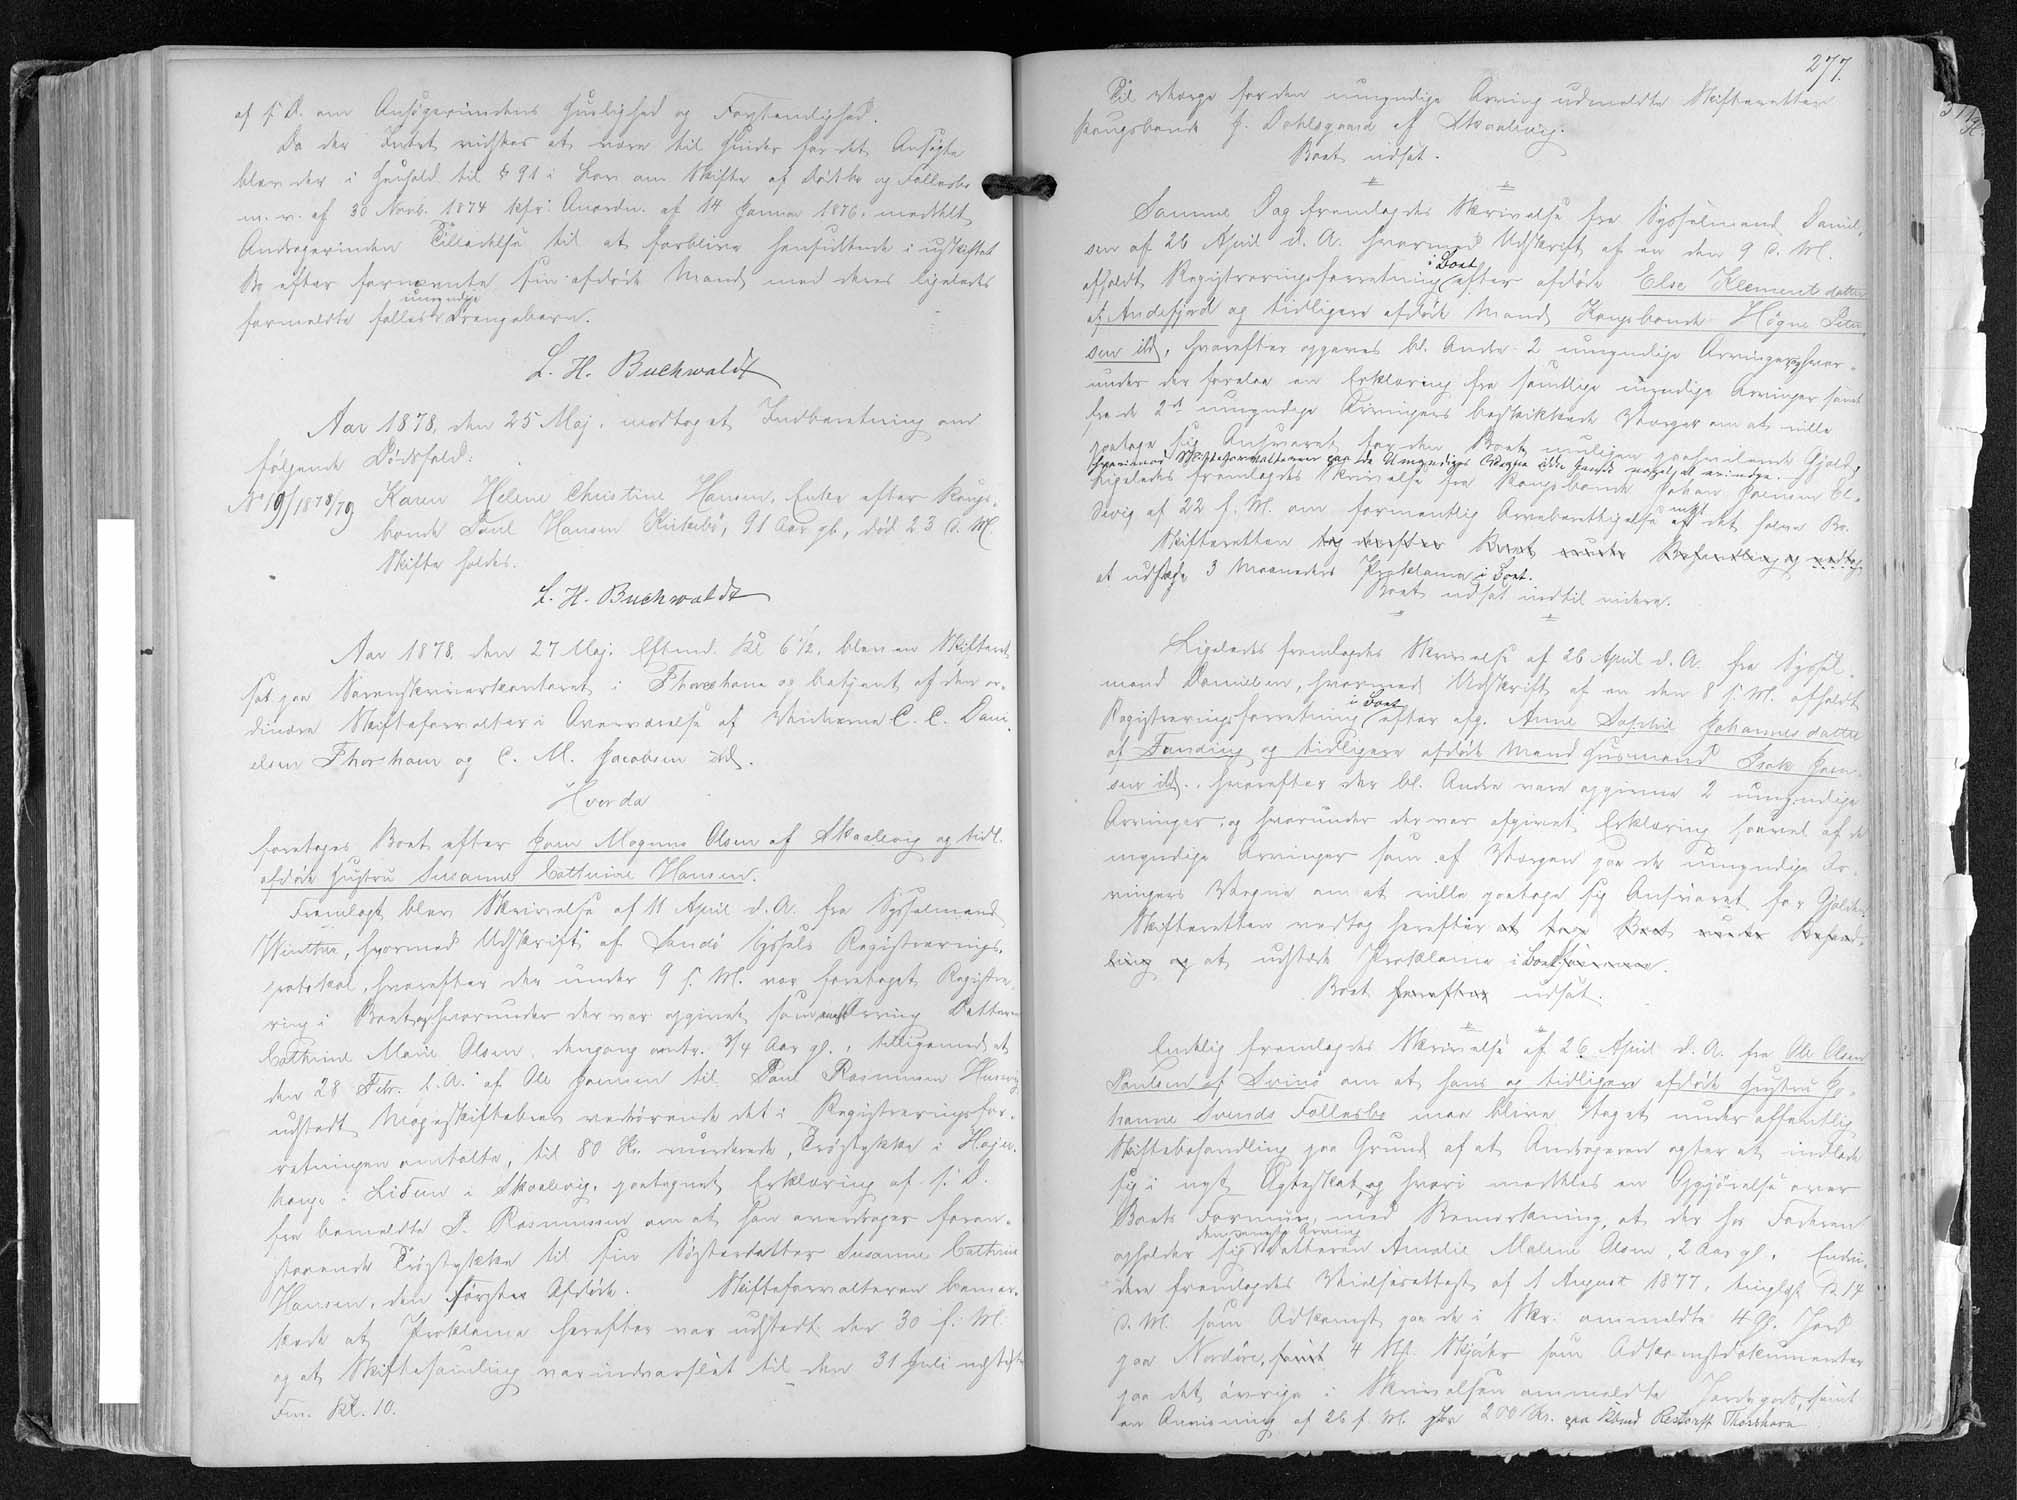 af s. D. om Ansøgerindens Huslighed og Forstandighed.
Da der Intet vidstes at være til Hinder for det Ansøgte
blev der i Henhold til § 91 i Lov om Skifte af Dødsbo og Fællesbo
m. v. af 30 Novb. 1874 kfr. Anordn. af 14 Januar 1876. meddelt
Andragerinden Tilladelse til at forblive hensiddende i uskiftet
Bo efter fornævnte sin afdøde Mand med deres ligeledes
formeldte fælles umyndige Drengebørn.
L. H. Buchwaldt
Aar 1878, den 25 Maj. modtaget Indberetning om
følgende Dødsfald:
No 19/1878/79 Karen Helene Christine Hansen, Enke efter Kongs-
bonde Poul Hansen Kirkebø, 91 Aar gl., død 23 d. M.
Skifte holdes.
L. H. Buchwaldt
Aar 1878. den 27 Maj. Eftmd. Kl 6 1/2. blev en Skifteret
sat paa Sorenskriverkontoret i Thorshavn og betjent af den or-
dinære Skifteforvalter i Overværelse af Vidnerne C. C. Dani-
elsen Thorshavn og C. M. Jacobsen ibd.
Hvorda
foretoges Boet efter Joen Magnus Olsen af Skaalevig og tidl.
afdøde Hustru Susanne Cathrine Hansen.
Fremlagt blev Skrivelse af 11 April d. A. fra Sysselmand
Winther, hvormed Udskrift af Sandø Syssels Registrerings-
protokol, hvorefter der under 9 s. M. var foretaget Registre-
ring i Boet og hvorunder der var opgivet som eneste Arving Datteren
Cathrine Marie Olsen, dengang omtr. 3/4 Aar gl., tilligemed et
den 28 Febr. s. A. af Ole Joensen til Poul Rasmussen Husevig
udstedt Mageskiftebrev vedrørende det i Registreringsfor-
retningen omtalte, til 80 Kr. vurderede, Træstykke i Høje-
hauge i Lidun i Skaalevig, paategnet Erklæring af s. D.
fra bemeldte P. Rasmussen om at han overdrager foran-
staaende Træstykke til sin Søsterdatter Susanne Cathrine
Hansen, den først Afdøde. Skifteforvalteren bemær-
kede at Proklama herefter var udstedt den 30 f. M.
og at Skiftesamling var indvarslet til den 31 Juli næstefter
Fm. Kl. 10.
277.
Til Værge for den umyndige Arving udmeldte Skifteretten
Kongsbonde J. Dahlsgaard af Skaalevig.
Boet udsat.
Samme Dag fremlagdes Skrivelse fra Sysselmand Daniel-
sen af 26 April d. A. hvormed Udskrift af en den 9 s. M.
afholdt Registreringsforretning i Boet efter afdøde Else Klementsdatter
af Andefjord og tidligere afdøde Mand Kongsbonde Høgne Peter-
sen ibd, hvorefter opgaves bl. Andre 2 umyndige Arvinger og hvor-
under der forelaa en Erklæring fra samtlige myndige Arvinger samt
fra de 2de umyndige Arvingers beskikkede Værger om at ville
paatage sig Ansvaret for den Boet muligen paahvilende Gjæld,
hvorimod Skifteforvalteren paa de Umyndiges Vegne ikke havde noget at erindre.
Ligeledes fremlagdes Skrivelse fra Kongsbonde Johan Joensen El-
devig af 22 f. M. om formentlig Arveberettigelse med det halve Bo.
Skifteretten tog derefter Boet under Behandling og vedtog
at udstede 3 Maaneders Proklama i Boet.
Boet udsat indtil videre.
Ligeledes fremlagdes Skrivelse af 26 April d. A. fra Syssel-
mand Danielsen, hvormed Udskrift af en den 8 s. M. afholdt
Registreringsforretning i Boet efter afg. Anne Sophie Johannesdatter
af Funding og tidligere afdøde Mand Husmand Isak Joen-
sen ibd., hvorefter der bl. Andre vare opgivne 2 umyndige
Arvinger, og hvorunder der var afgivet Erklæring saavel af de
myndige Arvinger som af Værgen paa de umyndige Ar-
vingers Vegne om at ville paatage sig Ansvaret for Gjælden.
Skifteretten vedtog herefter at tage Boet under Behand-
ling og at udstede Proklama i Boet
Boet herefter udsat.
Endelig fremlagdes Skrivelse af 26 April d. A. fra Ole Olsen
Poulsen af Svinø om at hans og tidligere afdøde Hustru Jo-
hanne Svends Fællesbo maa blive taget under offentlig
Skiftebehandling paa Grund af at Andrageren agter at indlade
sig i nyt Ægteskab, og hvori meddeles en Opgjørelse over
Boets Formue, med Bemærkning, at der hos Faderen
opholder sig den eneste Arving Datteren Amalie Malene Olsen, 2 Aar gl. Endvi-
dere fremlagdes Vielsesattest af 1 August 1877, tinglæst d. 14
s. M. som Adkomst paa de i Skr. ommeldte 4 G. Jord
paa Nordøre, samt 4 Stk. Skjøder som Adkomstdokumenter
paa det øvrige i Skrivelsen ommeldte Jordegods, samt
en Anvisning af 26 f. M. stor 200 Kr. paa Kbmd Restorff Thorshavn